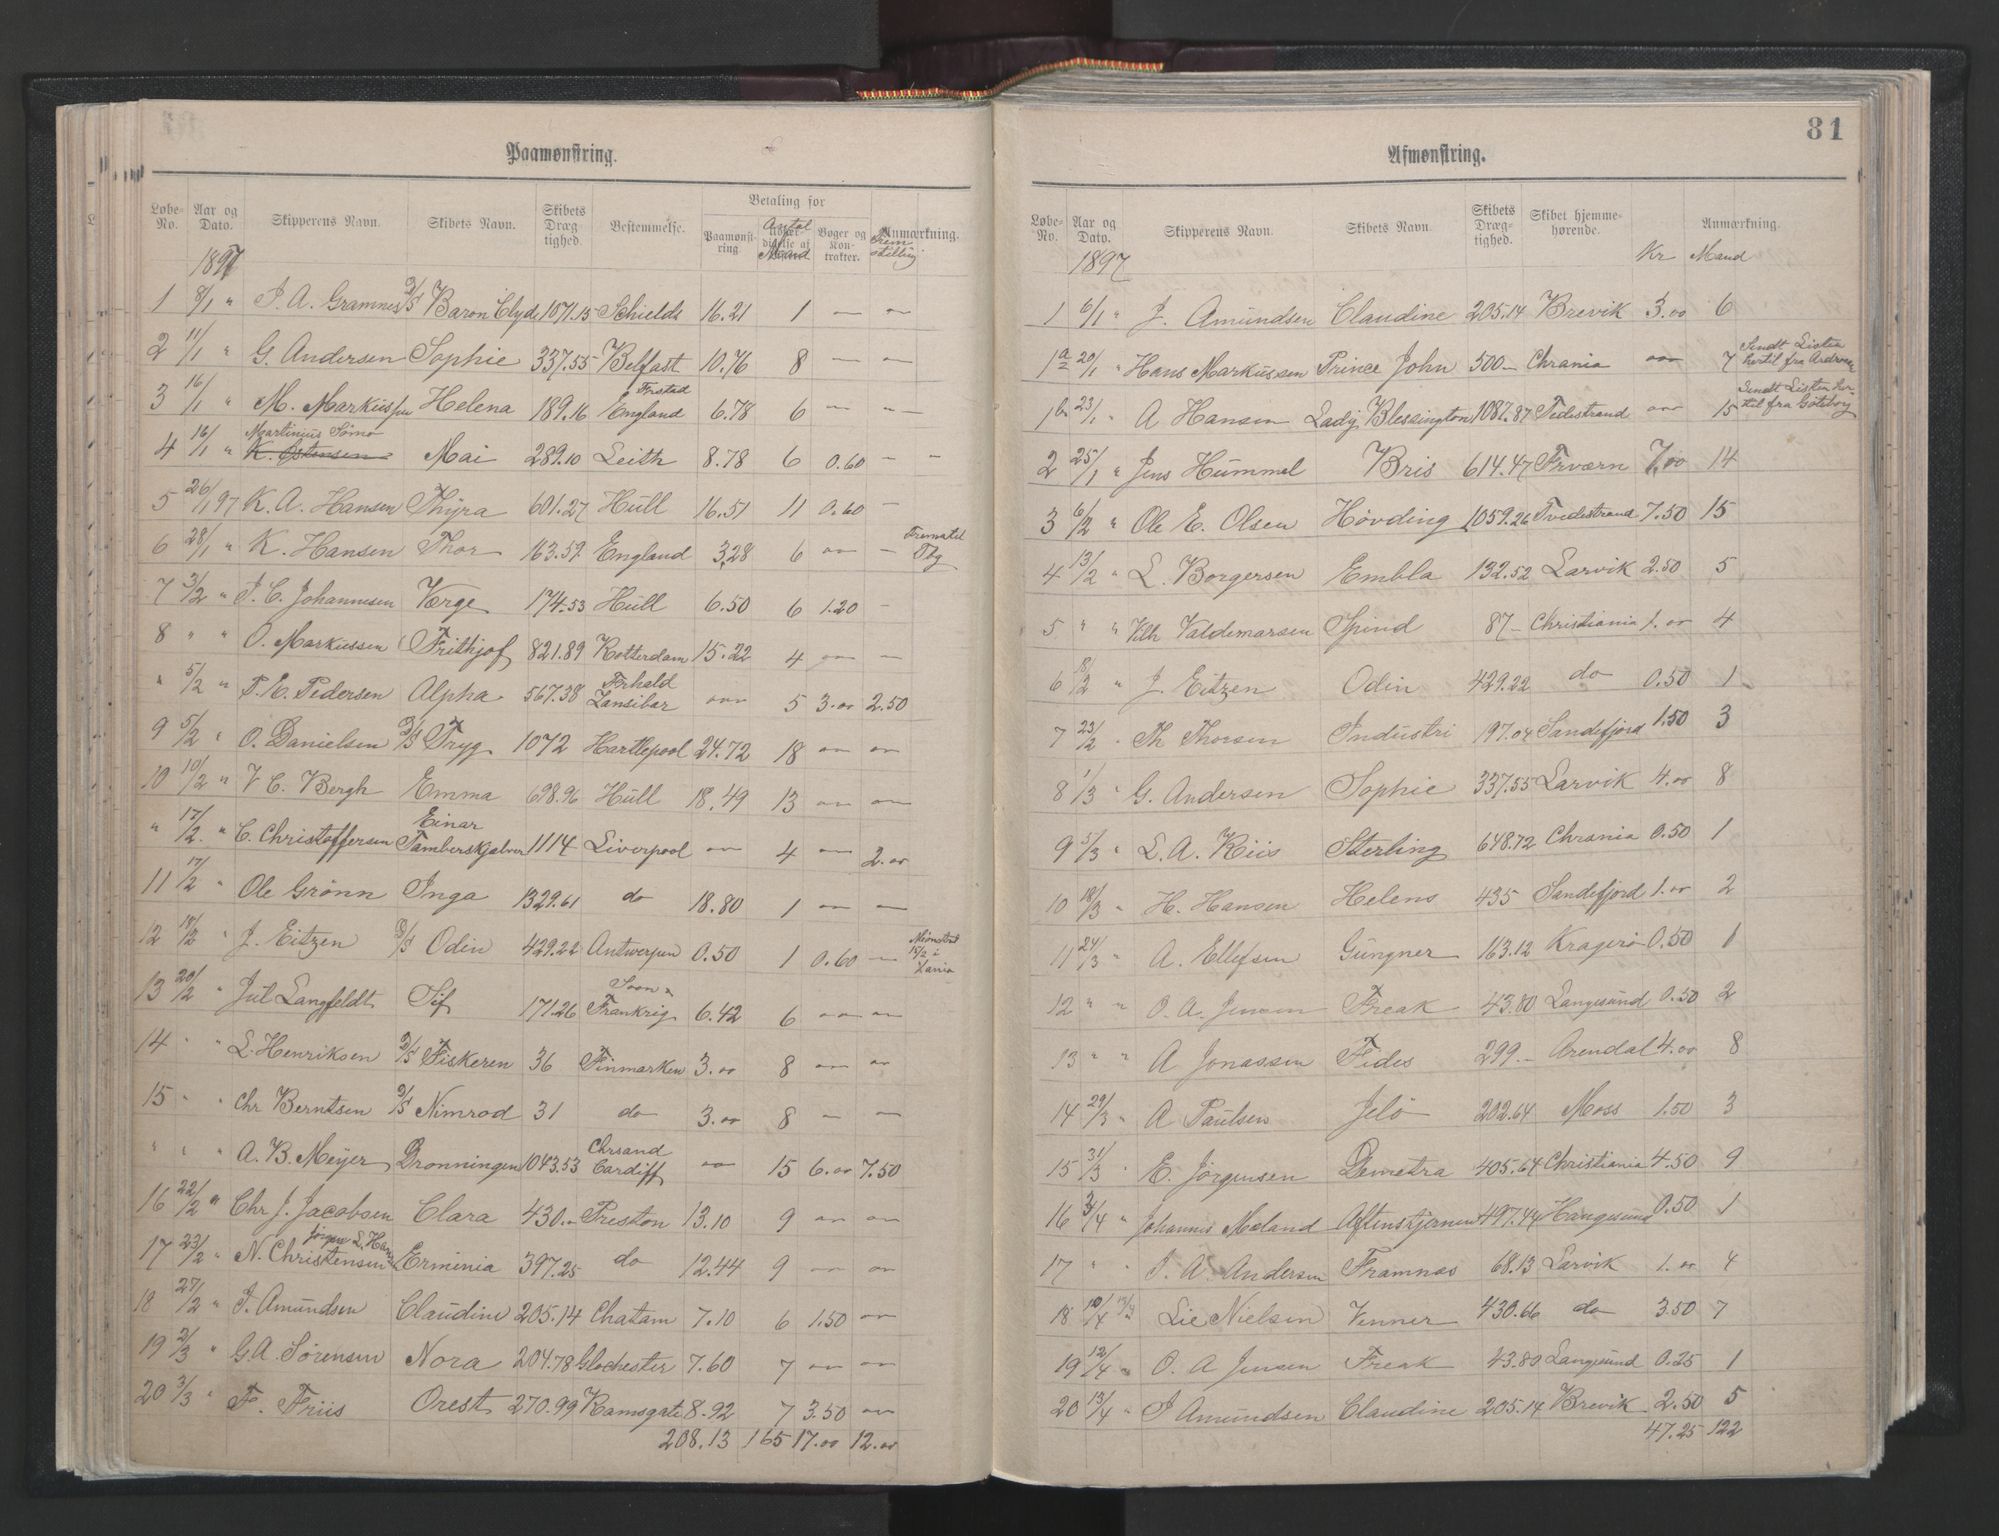 81
Paamonstring.
Løbe-No. Aar og Dato. Skipperens Navn. Skibets Navn. Skibets Dræg tighed. Bestemmelse. Betaling for Paamonstring Antal Mand Bøger og Kontrakter. Frem stilling Anmærkning.
1897
1 8/1 " J. A. Gramnes D/S Baron Clyde 1071.15 Schields 16.21 1 — —
2 11/1 " G. Andersen Sophie 337.55 Belfast 10.76 8 — —
3 16/1 " M. Markussen Helena 189.16 Frstad England 6.78 6 — " —
4 16/1 " Martinius Sömo K. Östensen Mai 289.10 Leith 8.78 6 0.60 — —
5 26/1 97 K. A. Hansen Thÿra 601.27 Hull 16.51 11 0.60 —
6 28/1 " K. Hansen Thor 163.59 England 3.28 6 — —
7 3/2 " J. C. Johannesen Værge 174.53 Hull 6.50 6 1.20 —
8 " " O. Markussen Frithjof 821.89 Rotterdam 15.22 4 — —
" 5/2 " P. E. Pedersen Alpha 567.38 Frhald Zansibar — 5 3.00 2.50
9 5/2 " O. Danielsen D/S Tryg 1072 Hartlepool 24.72 18 — —
10 10/2 " V C. Bergh Emma 698.96 Hull 18.49 13 — —
" 17/2 " C. Christoffersen Einar Tamberskjelver 1114 Liverpool — 4 — 2.00
11 17/2 " Ole Grönn Inga 1329.61 do 18.80 1 — —
12 18/2 " J. Eitzen D/S Odin 429.22 Antwerpen 0.50 1 0.60 — Mönstret 15/2 i Xania
13 20/2 " Jul Langfeldt Sif 171.26 Soon Frankrig 6.42 6 — —
14 " " L. Henriksen D/S Fiskeren 36 Finmarken 3.00 8 — —
15 " " Chr Berntsen D/S Nimrod 31 do 3.00 8 — —
" " " A. B. Meyer Dronningen 1043.53 Chrsand Cardiff — 15 6.00 7.50
16 22/2 " Chr J. Jacobsen Clara 430.- Preston 13.10 9 — —
17 23/2 " N. Christensen Erminia 397.25 do 12.44 9 — —
18 27/2 " J. Amundsen Claudine 205.14 Chatam 7.10 6 1.50 —
19 2/3 " G.A. Sørensen Nora 204.78 Glochester 7.60 7 — —
20 3/3 " F. Friis Orest 270.99 Ramsgate 8.92 7 3.50 —
208.13 165 17.00 12.00
Afmonstring.
Løbe-No. Aar og Dato. Skipperens Navn. Skibets Navn. Skibets Dræg-tighed. Skibet hjemme-hørende. Anmærkning.
1897 Kr Mand
1 6/1 " J. Amundsen Claudine 205.14 Brevik 3.00 6
1a 20/1 " Hans Markussen Prince John 500 — Chrania — 7 Sendt Listen hertil fra
1b 23/1 " A Hansen Lady Blessington 1087.87 Tvedestrand — 15 Sendt Listen hertil fra Göteborg
2 25/1 " Jens Hummel Bris 614.47 Frværn 7.00 14
3 6/2 " Ole E. Olsen Hövding 1059.26 Tvedestrand 7.50 15
4 13/2 " L. Borgersen Embla 132.52 Larvik 2.50 5
5 " " Vilh Valdemarsen Spind 87 — Christiania 1.00 4
6 18/2 " J. Eitzen Odin 429.22 do 0.50 1
7 23/2 " Th Thorsen Industri 197.04 Sandefjord 1.50 3
8 1/3 " G. Andersen Sophie 337.55 Larvik 4.00 8
9 5/3 " L. A. Riis Sterling 648.72 Chrania 0.50 1
10 18/3 " H. Hansen Helens 435 Sandefjord 1.00 2
11 24/3 " A. Ellefsen Gungner 163.12 Kragerö 0.50 1
12 " " O. A. Jensen Freak 43.80 Langesund 0.50 2
13 " " A Jonassen Fides 299.- Arendal 4.00 8
14 29/3 " A Paulsen Jelö 202.64 Moss 1.50 3
15 31/3 " E. Jörgensen Demetra 405.64 Christiania 4.50 9
16 3/4 " Johannes Mæland Aftenstjernen 497.44 Haugesund 0.50 1
17 " " J. A. Andersen Framnæs 68.13 Larvik 1.00 4
18 10/4 Lie Nielsen Venner 430.66 do 3.50 7
19 12/4 " O. A Jensen Freak 43.80 Langesund 0.25 1
20 13/4 " J Amundsen Claudine 205.14 Brevik 2.50 5
47.25 122